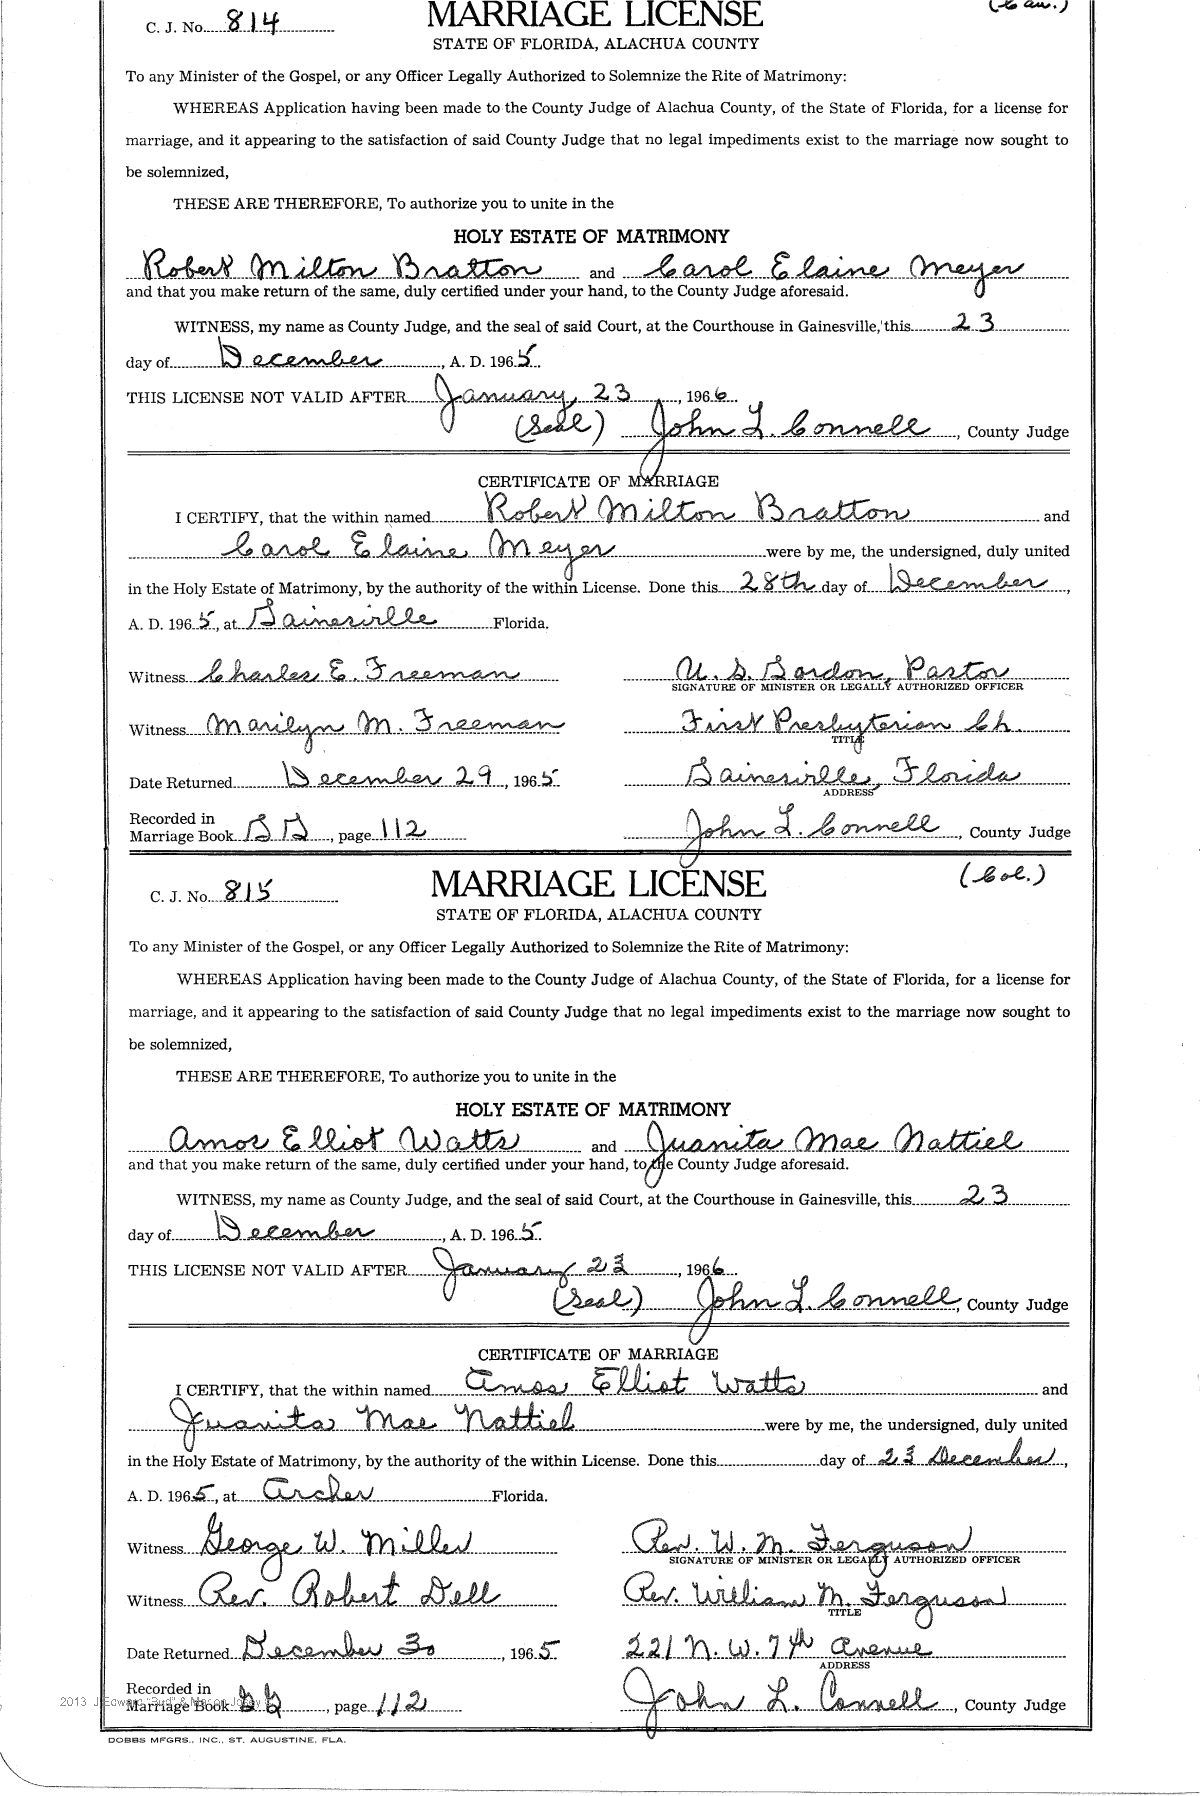 C. J. No. 814 MARRIAGE LICENSE (Cau.)
STATE OF FLORIDA, ALACHUA COUNTY
To any Minister of the Gospel, or any Officer Legally Authorized to Solemnize the Rite of Matrimony:
WHEREAS Application having been made to the County Judge of Alachua County, of the State of Florida, for a license for
marriage, and it appearing to the satisfaction of said County Judge that no legal impediments exist to the marriage now sought to
be solemnized,
THESE ARE THEREFORE, To authorize you to unite in the
HOLY ESTATE OF MATRIMONY
Robert Milton Bratton and Carol Elaine Meyer
and that you make return of the same, duly certified under your hand, to the County Judge aforesaid.
WITNESS, my name as County Judge, and the seal of said Court, at the Courthouse in Gainesville, this 23
day of December, A. D. 1965.
THIS LICENSE NOT VALID AFTER January 23, 1966.
(Seal) John L. Connell, County Judge
CERTIFICATE OF MARRIAGE
I CERTIFY, that the within named Robert Milton Bratton and
Carol Elaine Meyer were by me, the undersigned, duly united
in the Holy Estate of Matrimony, by the authority of the within License. Done this 28th day of December,
A. D. 1965, at Gainesville Florida.
Witness Charles E. Freeman U. S. Gordon, Pastor
SIGNATURE OF MINISTER OR LEGALLY AUTHORIZED OFFICER
Witness Marilyn M. Freeman First Presbyterian Ch.
TITLE
Date Returned December 29, 1965 Gainesville, Florida
ADDRESS
Recorded in
Marriage Book GG, page 112 John L. Connell, County Judge
C. J. No. 815 MARRIAGE LICENSE (Col.)
STATE OF FLORIDA, ALACHUA COUNTY
To any Minister of the Gospel, or any Officer Legally Authorized to Solemnize the Rite of Matrimony:
WHEREAS Application having been made to the County Judge of Alachua County, of the State of Florida, for a license for
marriage, and it appearing to the satisfaction of said County Judge that no legal impediments exist to the marriage now sought to
be solemnized,
THESE ARE THEREFORE, To authorize you to unite in the
HOLY ESTATE OF MATRIMONY
Amos Elliot Watts and Juanita Mae Nattiel
and that you make return of the same, duly certified under your hand, to the County Judge aforesaid.
WITNESS, my name as County Judge, and the seal of said Court, at the Courthouse in Gainesville, this 23
day of December, A. D. 1965.
THIS LICENSE NOT VALID AFTER January 23, 1966.
(Seal) John L. Connell, County Judge
CERTIFICATE OF MARRIAGE
I CERTIFY, that the within named Amos Elliot Watts and
Juanita Mae Nattiel were by me, the undersigned, duly united
in the Holy Estate of Matrimony, by the authority of the within License. Done this day of 23 December,
A. D. 1965, at Archer Florida.
Witness George W. Miller Rev. W. M. Ferguson
SIGNATURE OF MINISTER OR LEGALLY AUTHORIZED OFFICER
Witness Rev. Robert Dell Rev. William M. Ferguson
TITLE
Date Returned December 30, 1965 221 N. W. 7th Avenue
ADDRESS
Recorded in
Marriage Book GG, page 112 John L. Connell, County Judge
2013 J Edward "Bud" &
DOBBS MFGRS., INC., ST. AUGUSTINE, FLA.